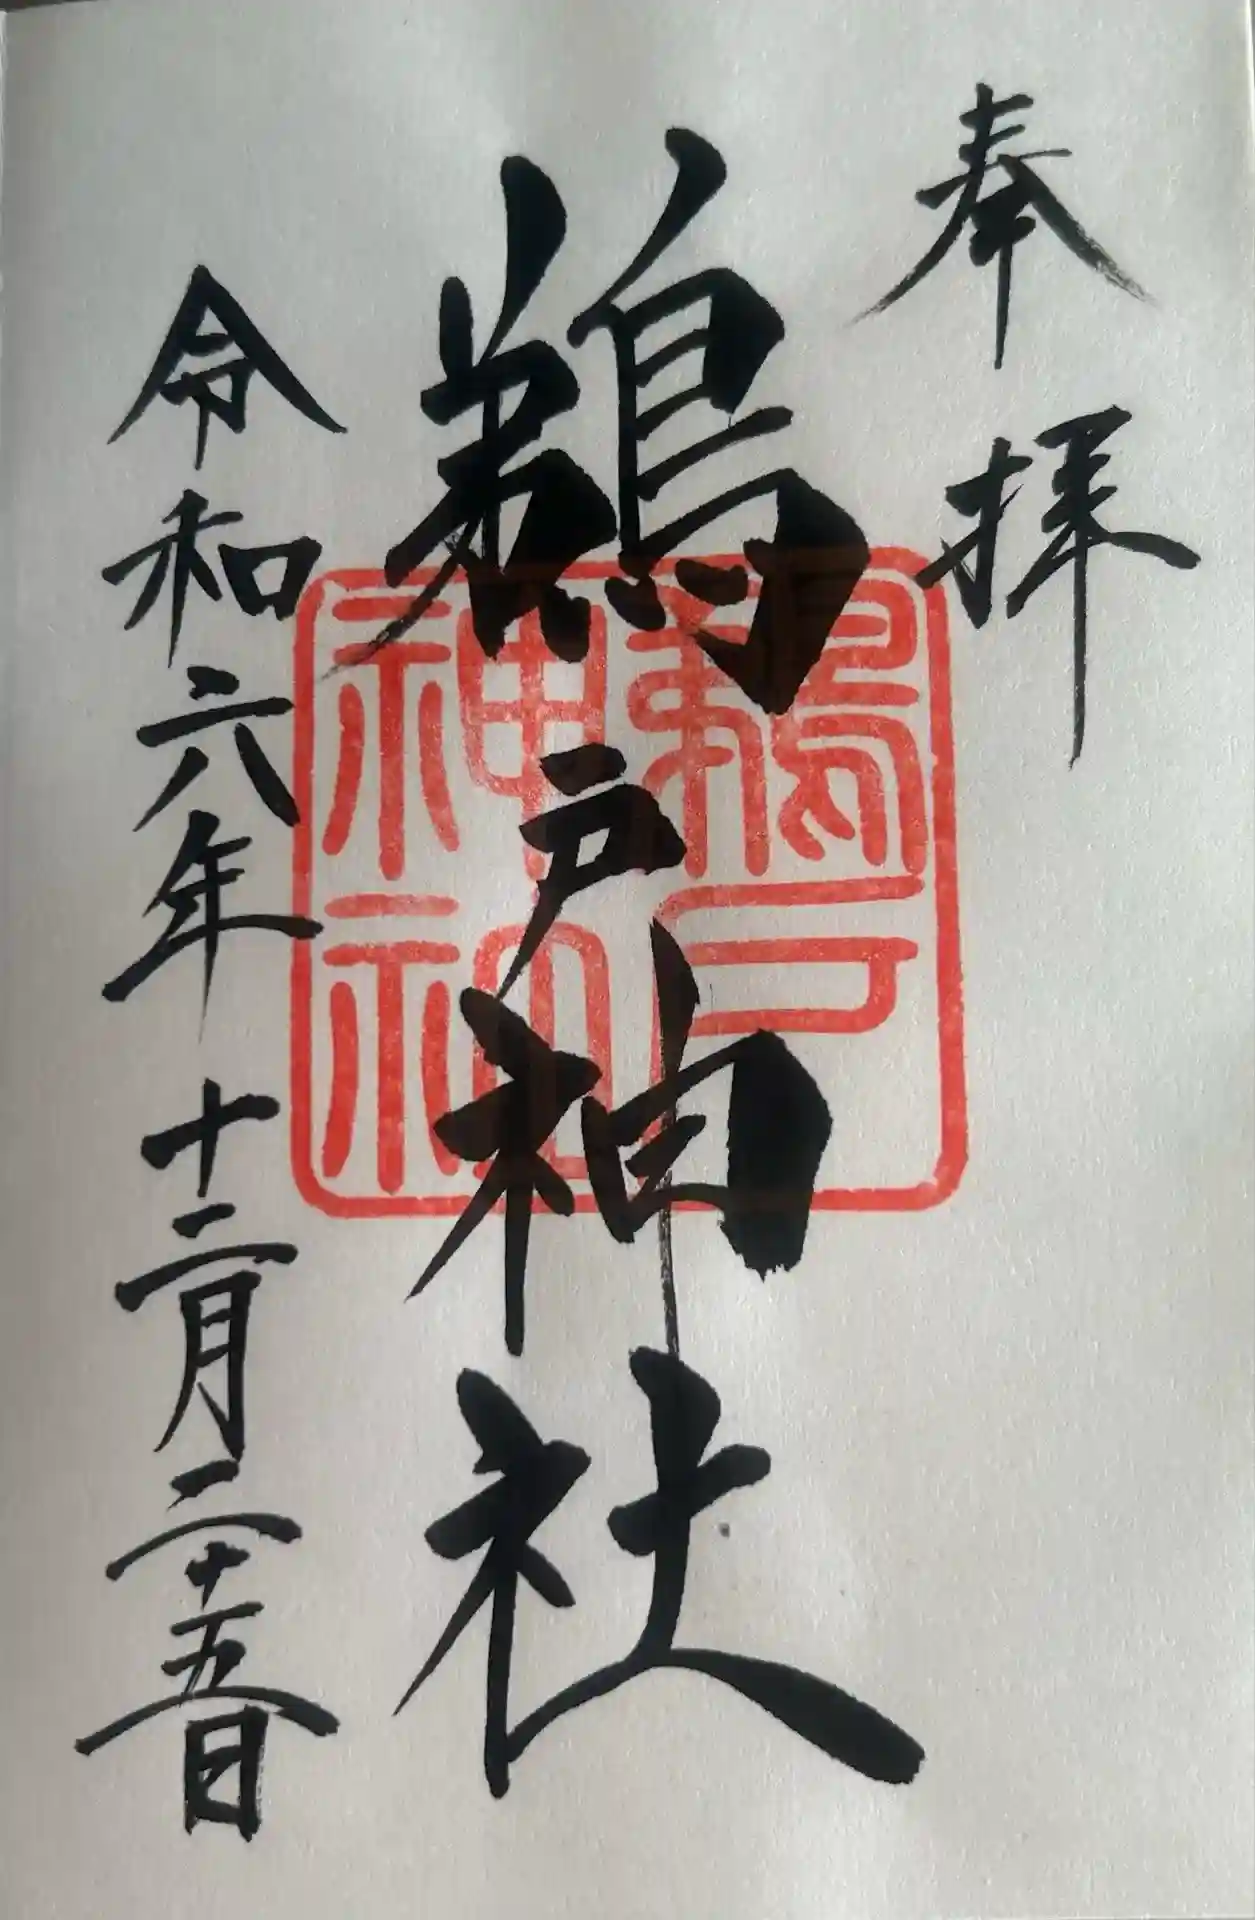 奉拝
鵜戸神社
令和六年 十二月二十五日
鵜戸
神社